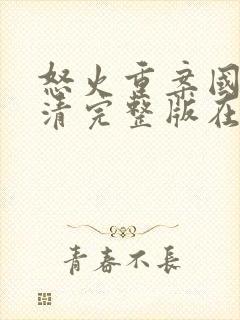 怒火重案國
清完整版在
青春不長